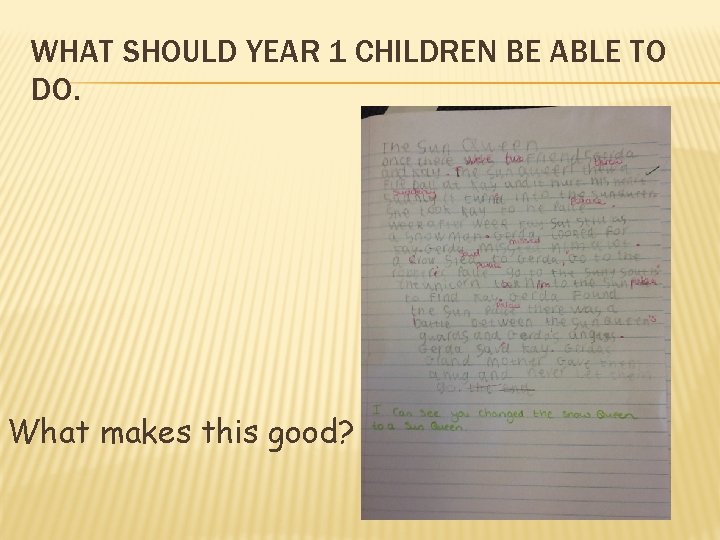 WHAT SHOULD YEAR 1 CHILDREN BE ABLE TO
DO.
The Sun Queen
once there were two Friend Gerda
and Kay. The sunqueen
Fire ball at Kay and it hurt his heart
suddenly
it turnd into the sunqueen
palace
She took Kay to he Palice.
week after week Kay Sat still as
a snowman. Gerda looked For
missed
Kay. Gerda missed him a lot.
said
a crow to Gerda, Go to the
palace
Palice go to the Suny South
the unicorn took him to the Sun palace
to find Kay. Gerda Found
palace
the Sun Palice there was a
battle between the Sun Queen's
guards and Gerda's
Gerda Kay. Gerdas
Grand mother Gave them
a hug and never let them
go. the end
I can see you changed the snow Queen
to a Sun Queen.
What makes this good?